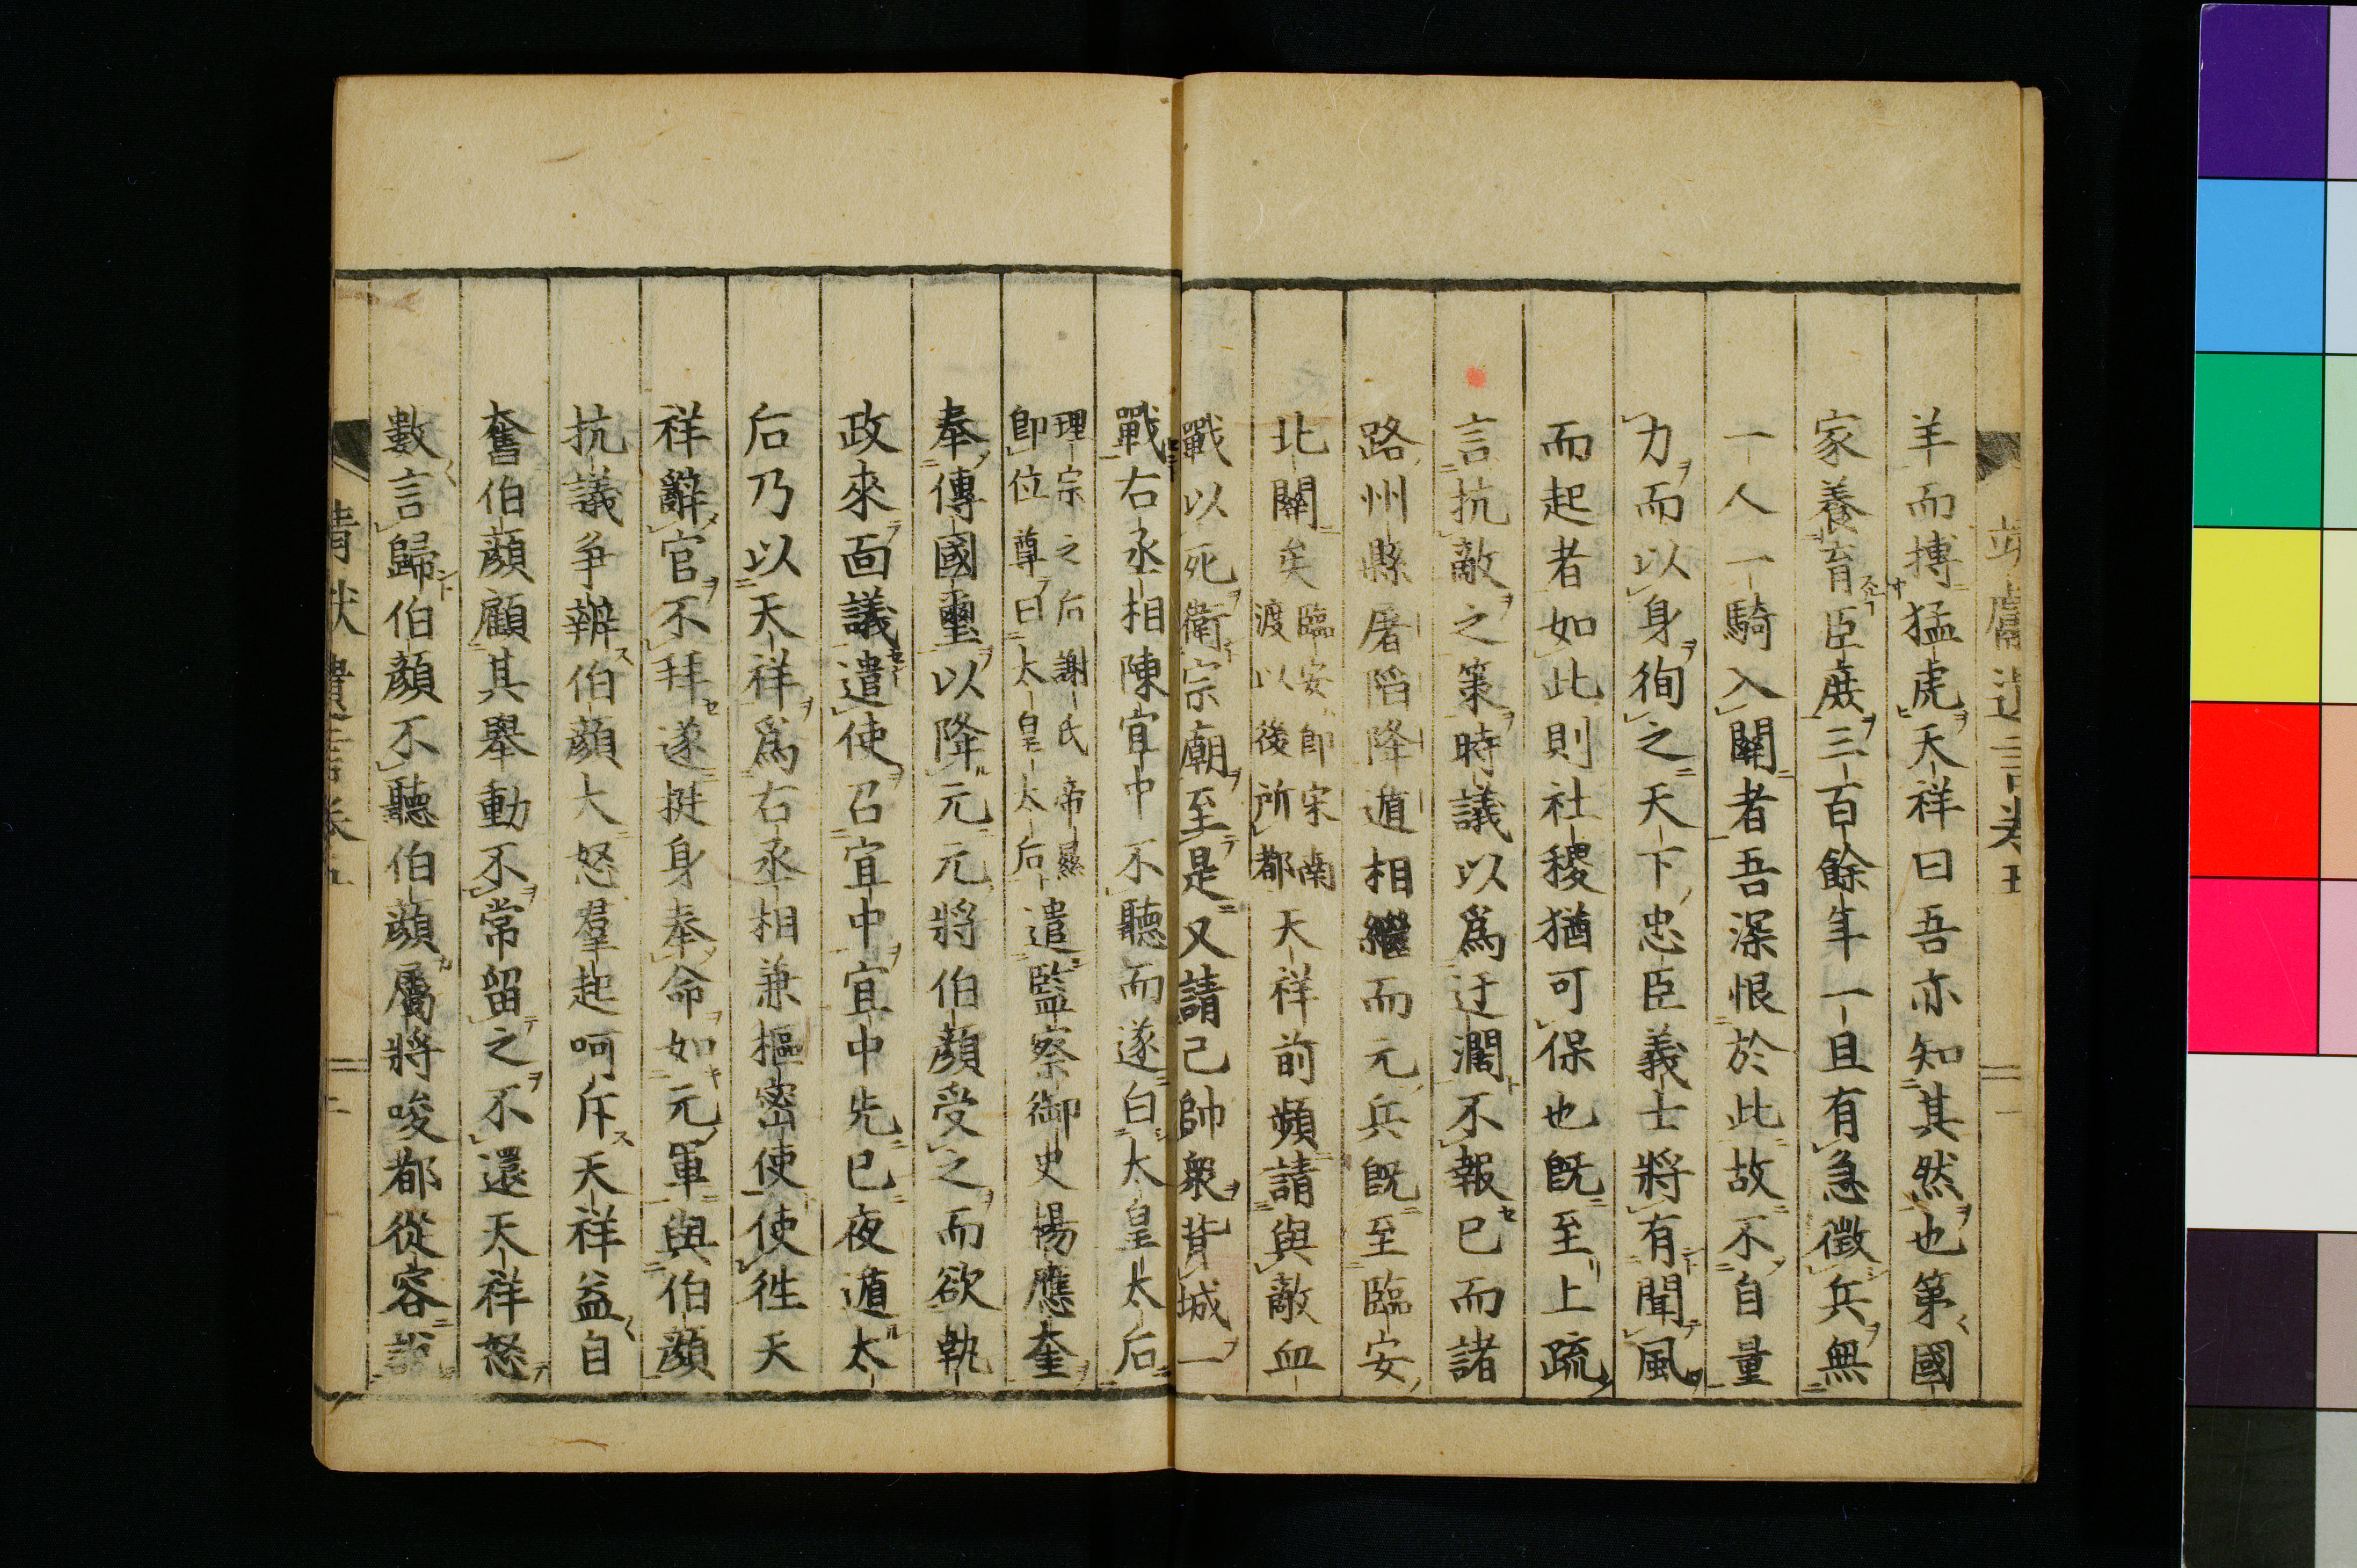 羊而搏猛虎天祥曰吾亦知其然也第國
家養育臣庶三百餘年一旦有急徵兵無
一人一騎入關者吾深恨於此故不自量
力而以身徇之天下忠臣義士將有聞風
而起者如此則社稷猶可保也既至上疏
言抗敵之策時議以爲迂濶不報已而諸
路州縣屠陷降遁相繼而元兵既至臨安
北關矣臨安即宋南渡以後所都天祥前頻請與敵血
戰以死衛宗廟至是又請己帥衆背城一
戰右丞相陳宜中不聽而遂白太皇太后
理宗之后謝氏帝㬎即位尊曰太皇太后遣監察御史楊應奎
奉傳國璽以降元元將伯顔受之而欲執
政來面議遣使召宜中宜中先已夜遁太
后乃以天祥爲右丞相兼樞密使使徃天
祥辭官不拜遂挺身奉命如元軍與伯顔
抗議爭辨伯顔大怒羣起呵斥天祥益自
奮伯顔顧其舉動不常留之不還天祥怒
數言歸伯顔不聽伯顔屬將唆都從容説